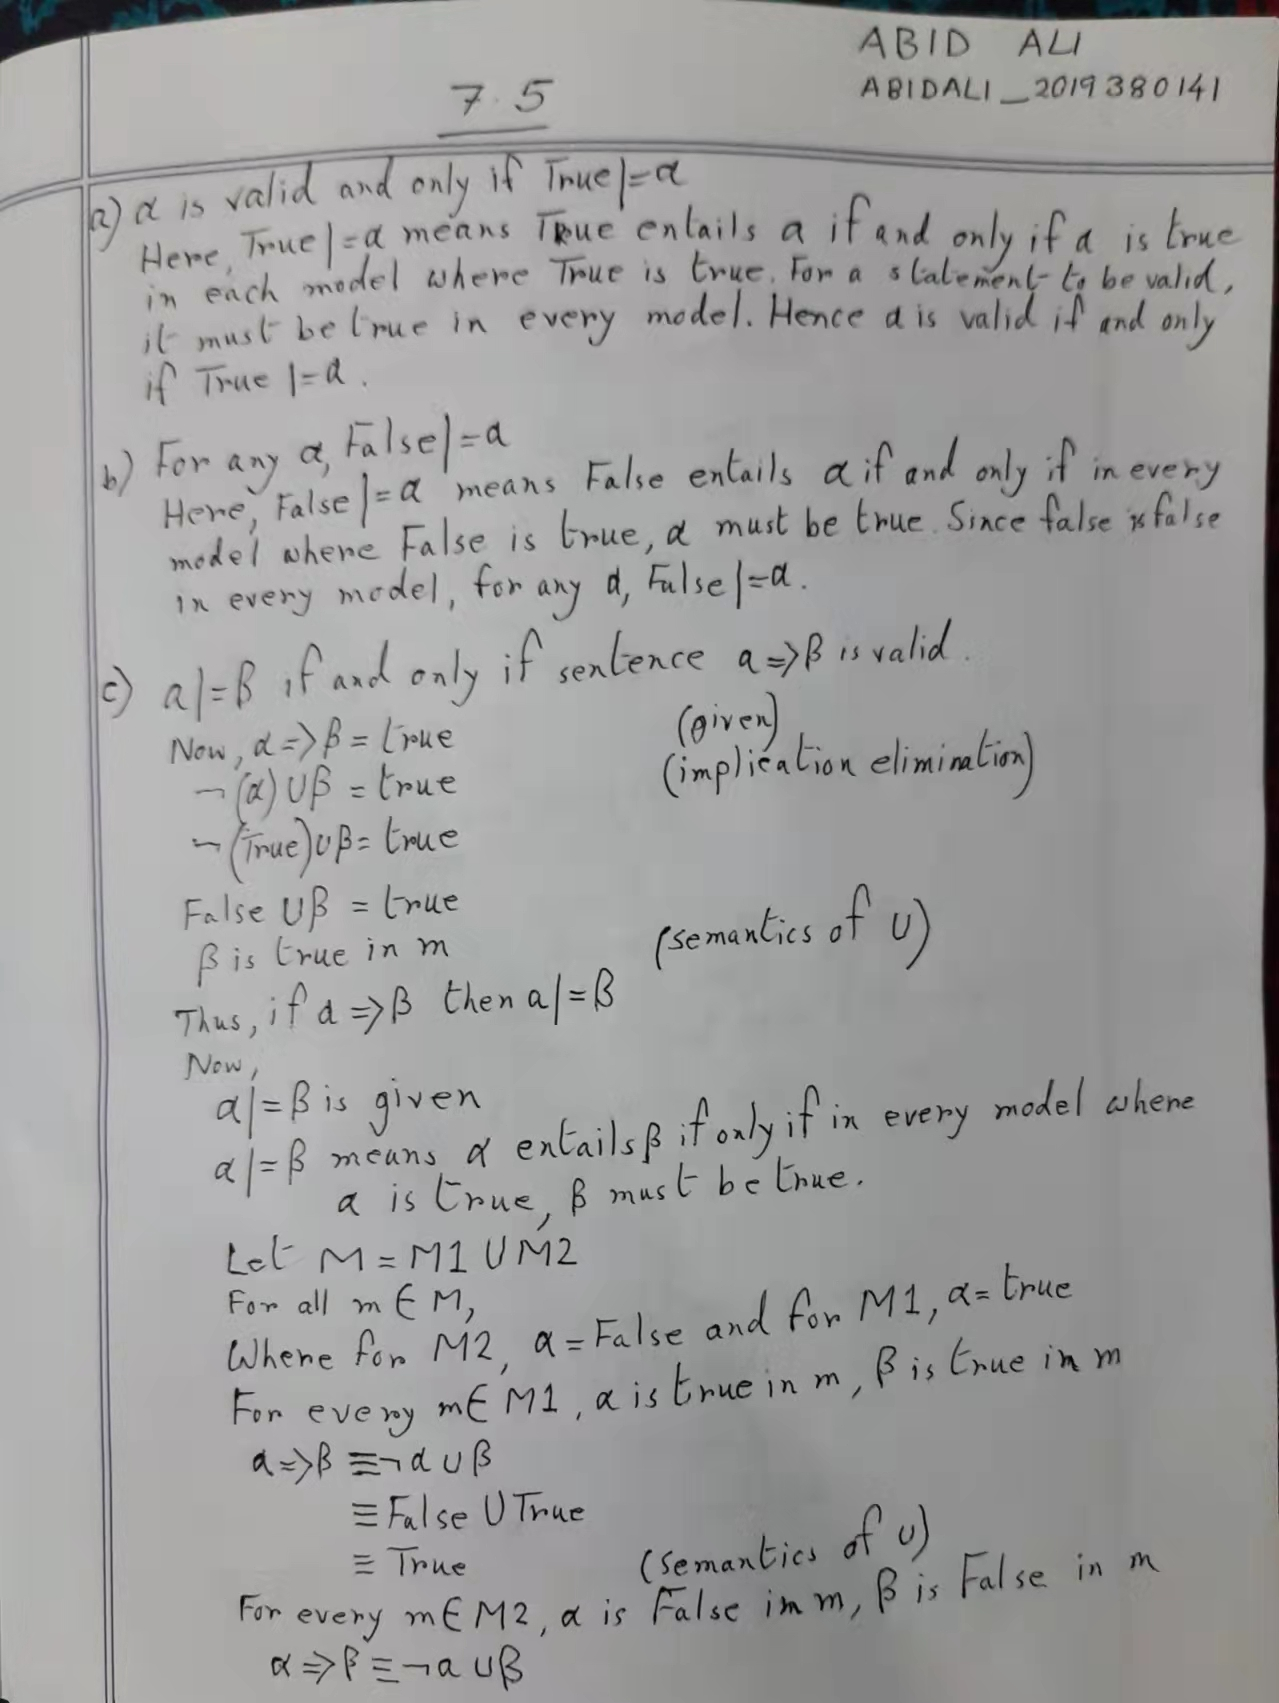 ABID ALI
ABIDALI_2019380141
7.5
a) α is valid and only if True|=α
Here, True|=α means True entails α if and only if α is true
in each model where True is true. For a statement to be valid,
it must be true in every model. Hence α is valid if and only
if True |=α.
b) For any α, False|=α
Here, False|=α means False entails α if and only if in every
model where False is true, α must be true. Since false is false
in every model, for any α, False|=α.
c) α|=β if and only if sentence α=>β is valid.
Now, α=>β = true (given)
¬(α)∪β = true (implication elimination)
¬(True)∪β = true
False ∪β = true
β is true in m (semantics of ∪)
Thus, if α=>β then α|=β
Now,
α|=β is given
α|=β means α entails β if only if in every model where
α is true, β must be true.
Let M = M1 ∪ M2
For all m ∈ M,
Where for M2, α = False and for M1, α = true
For every m∈ M1, α is true in m, β is true in m
α=>β ≡¬α∪β
≡ False ∪ True
≡ True (semantics of ∪)
For every m∈M2, α is False in m, β is False in m
α=>β ≡¬α∪β